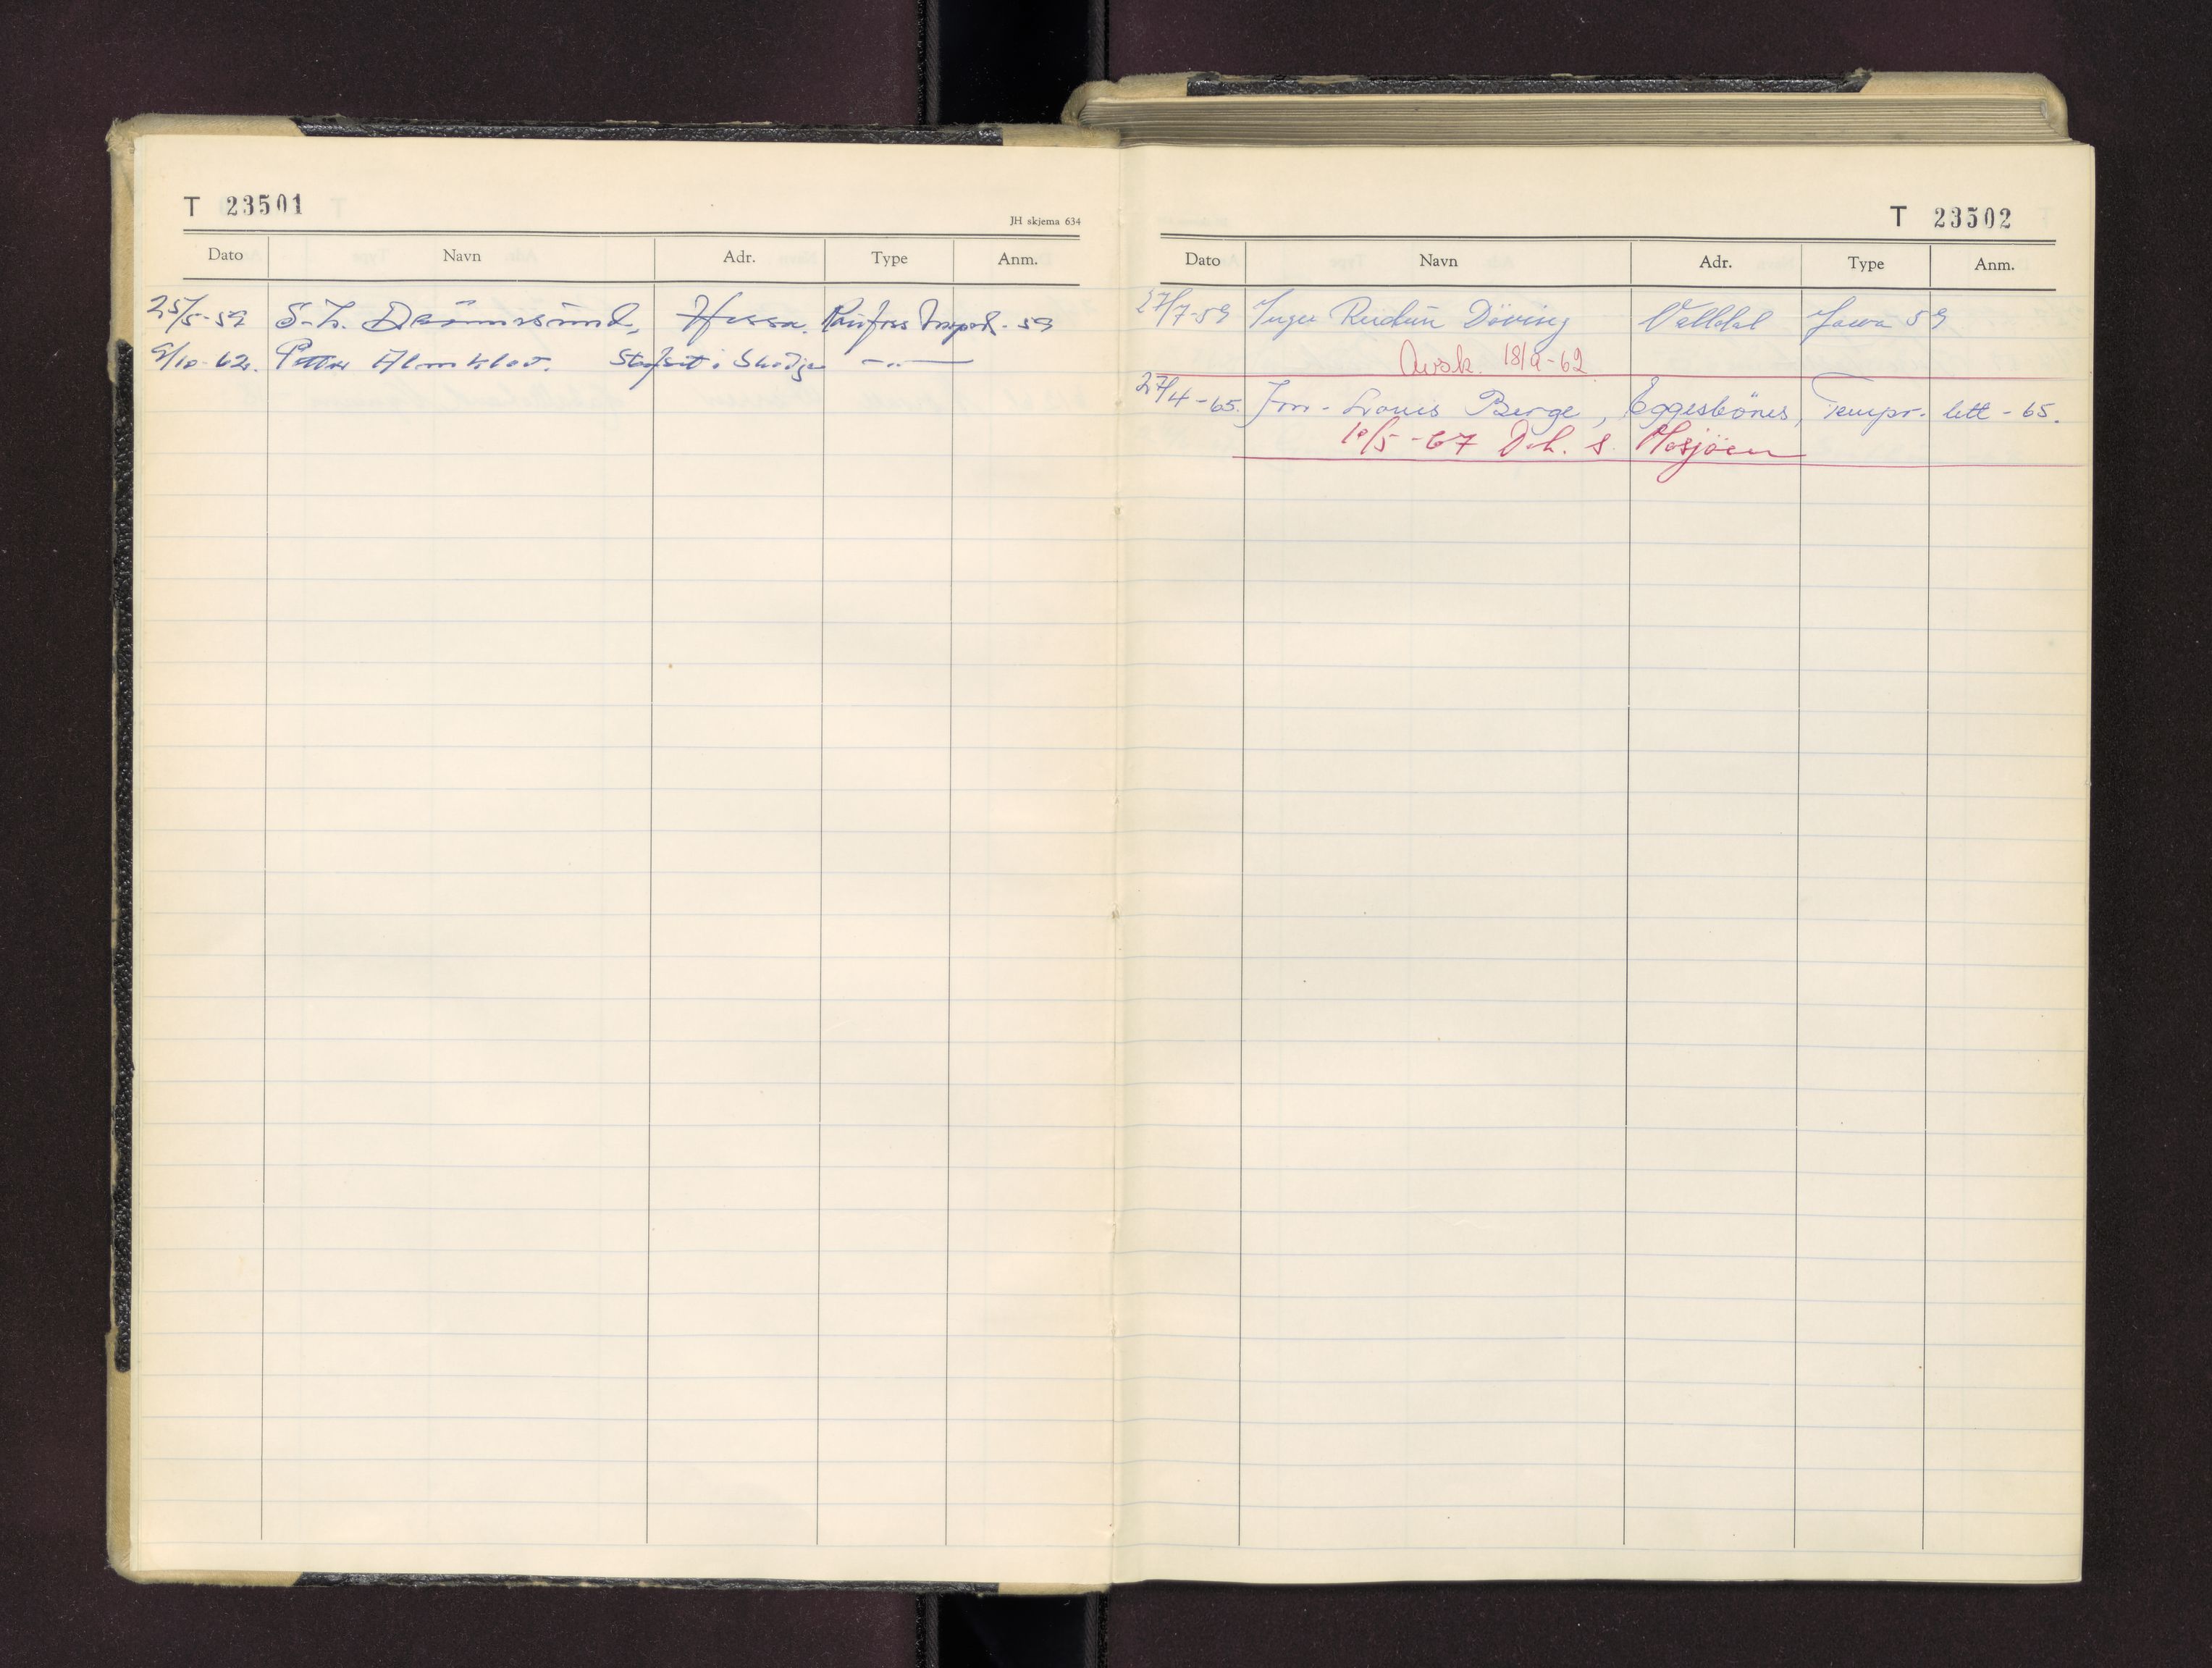 T 23501
JH skjema 634
Dato Navn Adr. Type Anm.
25/5-59 Hessa. - 59
9/10-62. Petter Almklov. i Skodje -"-
T 23502
Dato Navn Adr. Type Anm.
27/7-59 Inger Reidun Döving Valldal Jawa 59
Avsk. 18/9-62
27/4-65. Jon-Louis Berge, Eggesbönes, Tempo- lett - 65.
10/5-67 Mosjöen